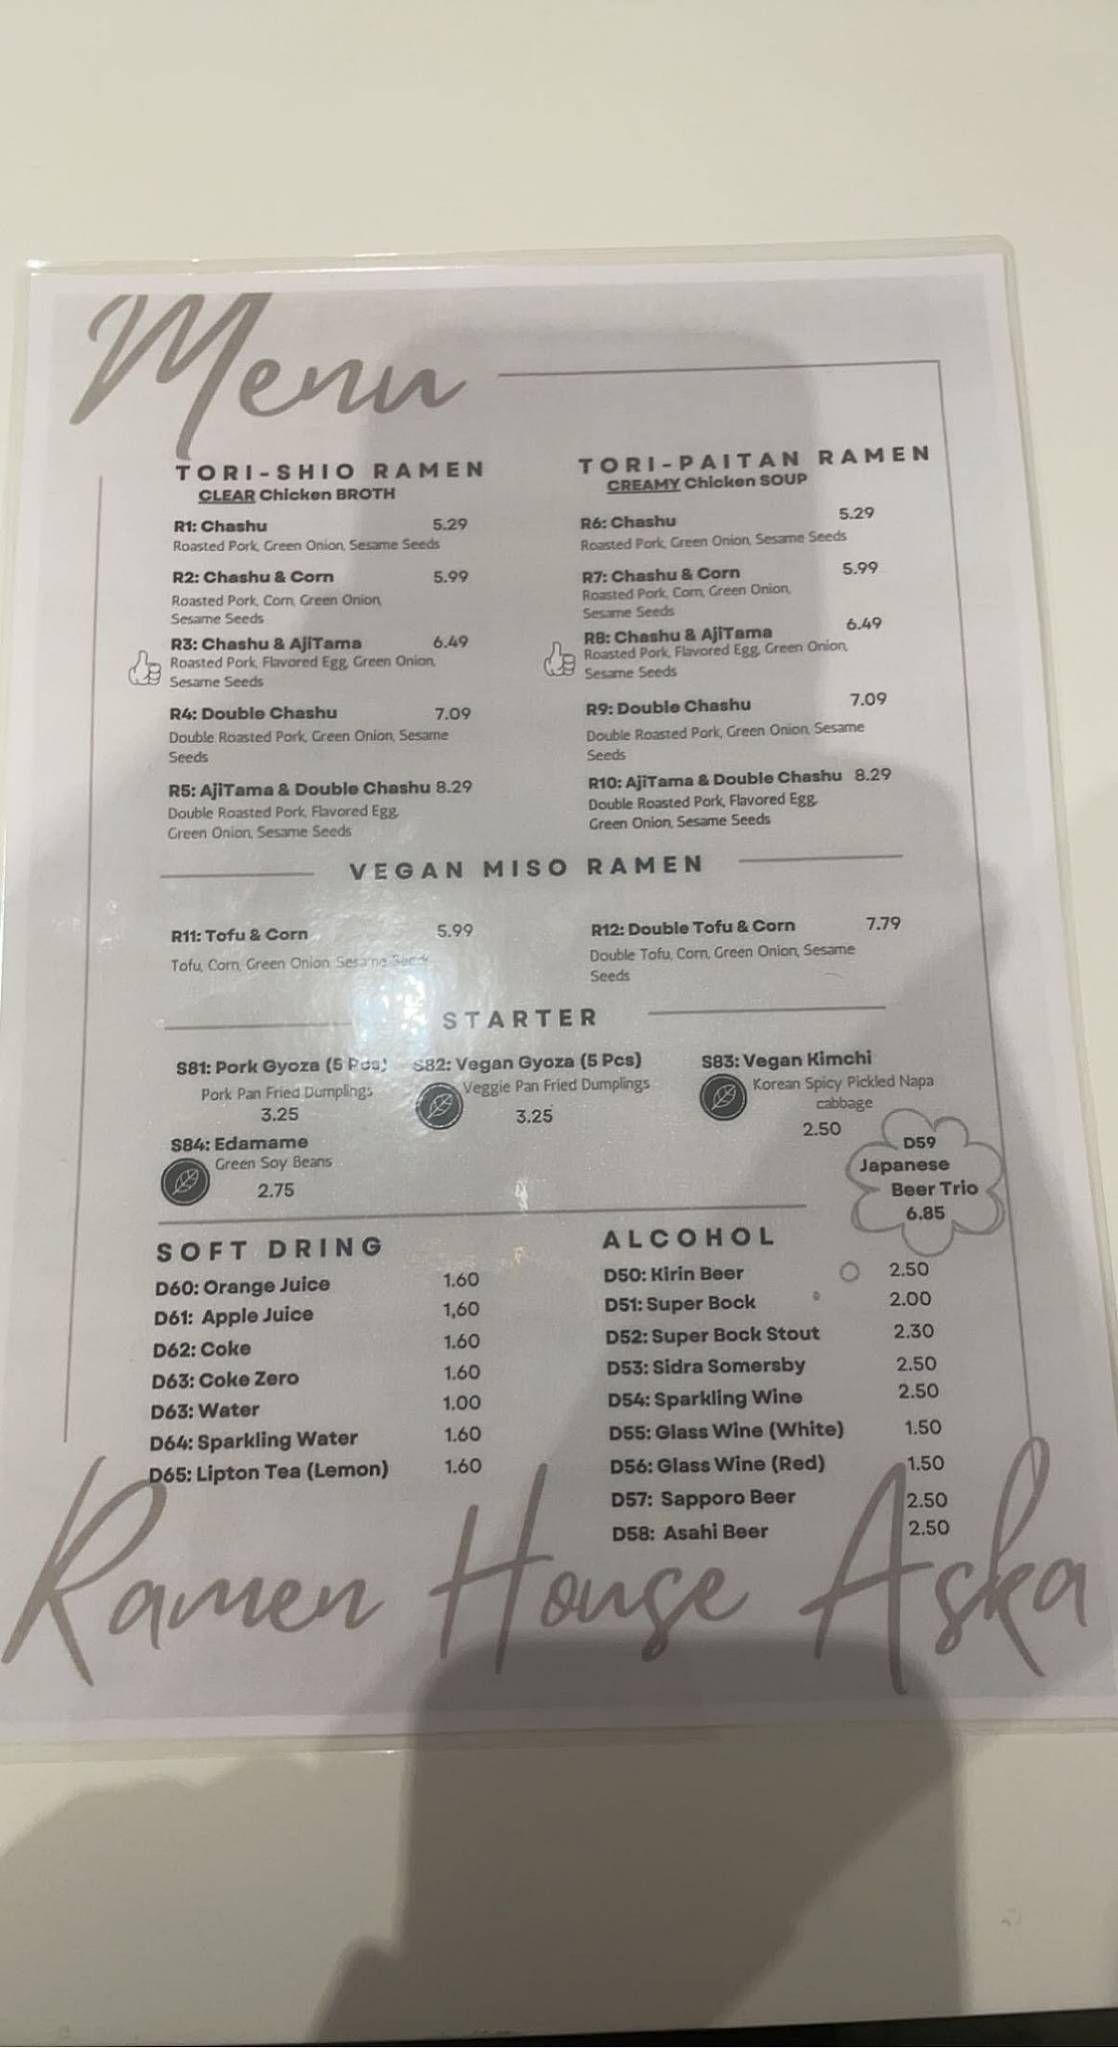 Menu
TORI-SHIO RAMEN
CLEAR Chicken BROTH
R1: Chashu 5.29
Roasted Pork, Green Onion, Sesame Seeds
R2: Chashu & Corn 5.99
Roasted Pork, Corn, Green Onion,
Sesame Seeds
R3: Chashu & AjiTama 6.49
Roasted Pork, Flavored Egg, Green Onion,
Sesame Seeds
R4: Double Chashu 7.09
Double Roasted Pork, Green Onion, Sesame
Seeds
R5: AjiTama & Double Chashu 8.29
Double Roasted Pork, Flavored Egg,
Green Onion, Sesame Seeds
TORI-PAITAN RAMEN
CREAMY Chicken SOUP
R6: Chashu 5.29
Roasted Pork, Green Onion, Sesame Seeds
R7: Chashu & Corn 5.99
Roasted Pork, Corn, Green Onion,
Sesame Seeds
R8: Chashu & AjiTama 6.49
Roasted Pork, Flavored Egg, Green Onion,
Sesame Seeds
R9: Double Chashu 7.09
Double Roasted Pork, Green Onion, Sesame
Seeds
R10: AjiTama & Double Chashu 8.29
Double Roasted Pork, Flavored Egg,
Green Onion, Sesame Seeds
VEGAN MISO RAMEN
R11: Tofu & Corn 5.99
Tofu, Corn, Green Onion, Sesame Seeds
R12: Double Tofu & Corn 7.79
Double Tofu, Corn, Green Onion, Sesame
Seeds
STARTER
S81: Pork Gyoza (5 Pcs)
Pork Pan Fried Dumplings
3.25
S82: Vegan Gyoza (5 Pcs)
Veggie Pan Fried Dumplings
3.25
S83: Vegan Kimchi
Korean Spicy Pickled Napa
cabbage
2.50
S84: Edamame
Green Soy Beans
2.75
D59
Japanese
Beer Trio
6.85
SOFT DRING
D60: Orange Juice 1.60
D61: Apple Juice 1,60
D62: Coke 1.60
D63: Coke Zero 1.60
D63: Water 1.00
D64: Sparkling Water 1.60
D65: Lipton Tea (Lemon) 1.60
ALCOHOL
D50: Kirin Beer 2.50
D51: Super Bock 2.00
D52: Super Bock Stout 2.30
D53: Sidra Somersby 2.50
D54: Sparkling Wine 2.50
D55: Glass Wine (White) 1.50
D56: Glass Wine (Red) 1.50
D57: Sapporo Beer 2.50
D58: Asahi Beer 2.50
Ramen House Aska